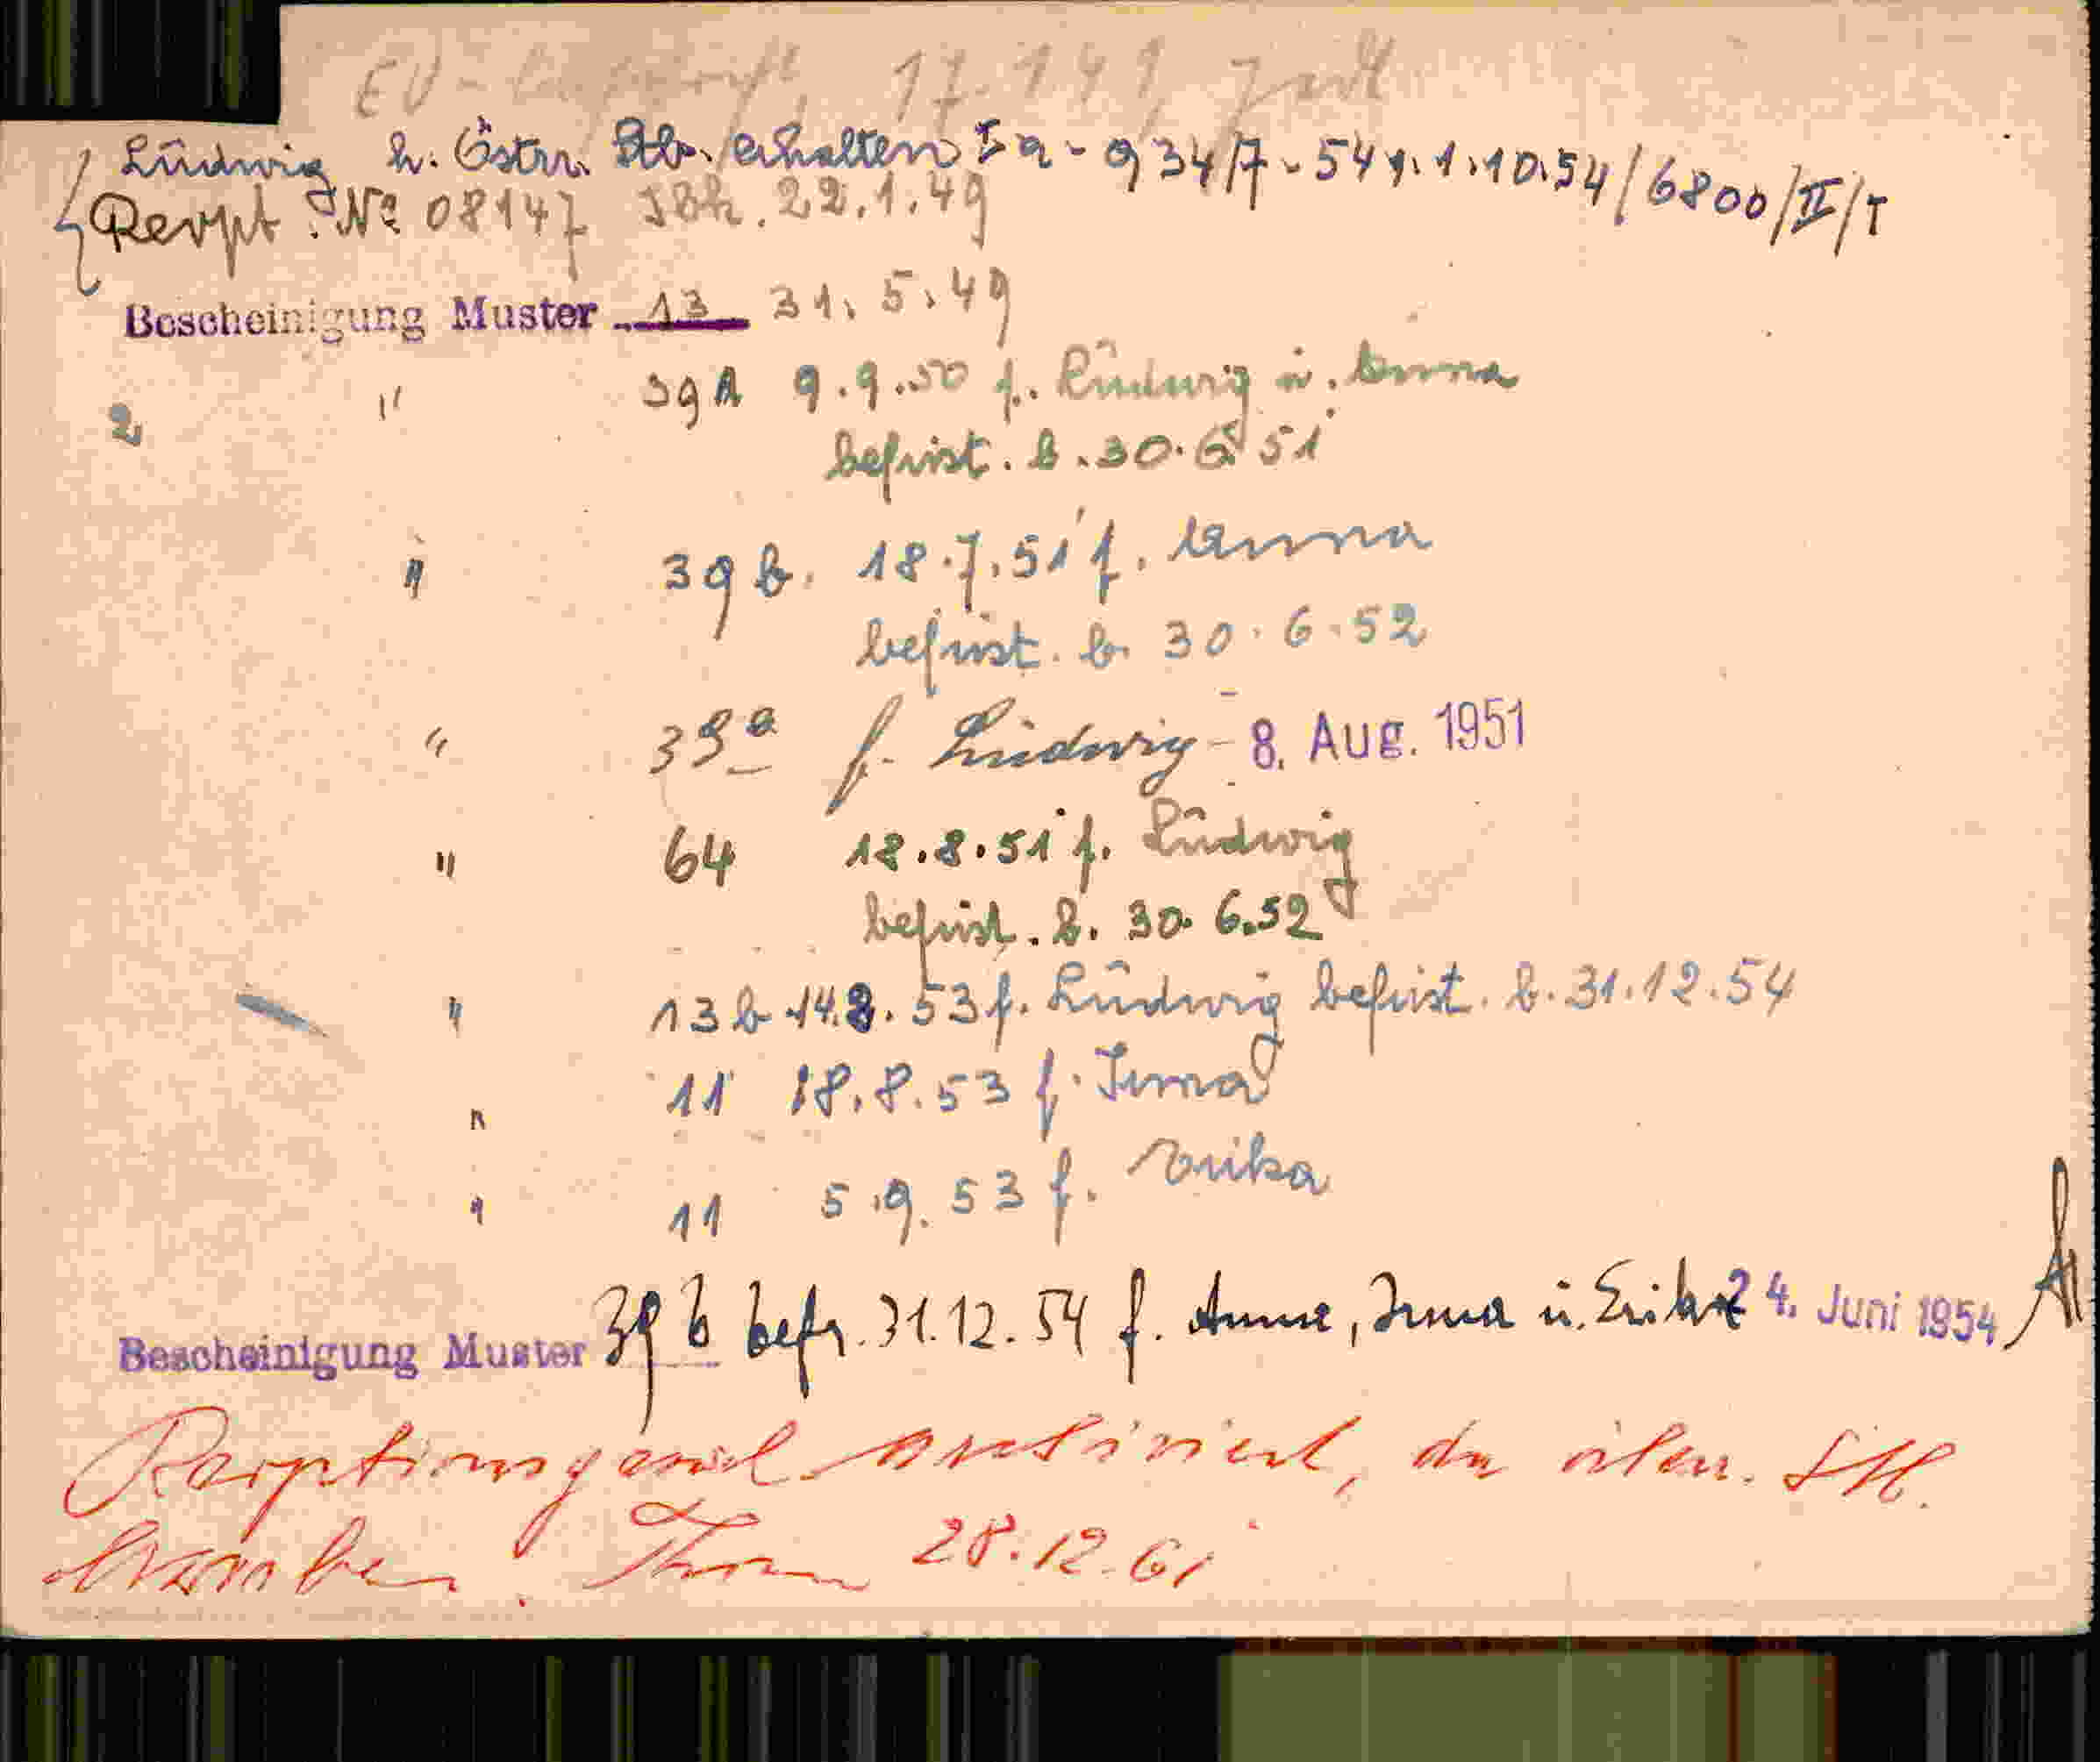 Ludwig h. Östrr. Stb. erhalten Ia - 934/7 - 54 v. 1.10.54/6800/II/T
Rezpt. № 08147 22.1.49
Bescheinigung Muster 13 31.5.49
2 " 39A 9.9.50 f. Ludwig u. Anna
befrist. b. 30.6.51
" 39 b. 18.7.51 f. Anna
befrist. b. 30.6.52
" 39a f. Ludwig - 8. Aug. 1951
" 64 18.8.51 f. Ludwig
befrist. b. 30.6.52
" 13 b 14.8.53 f. Ludwig befrist. b. 31.12.54
" 11 18.8.53 f. Irma
" 11 5.9.53 f. Erika
Bescheinigung Muster 39 b befr. 31.12.54 f. Anna, Irma u. Erika 24. Juni 1954
da
erworben. 28.12.61